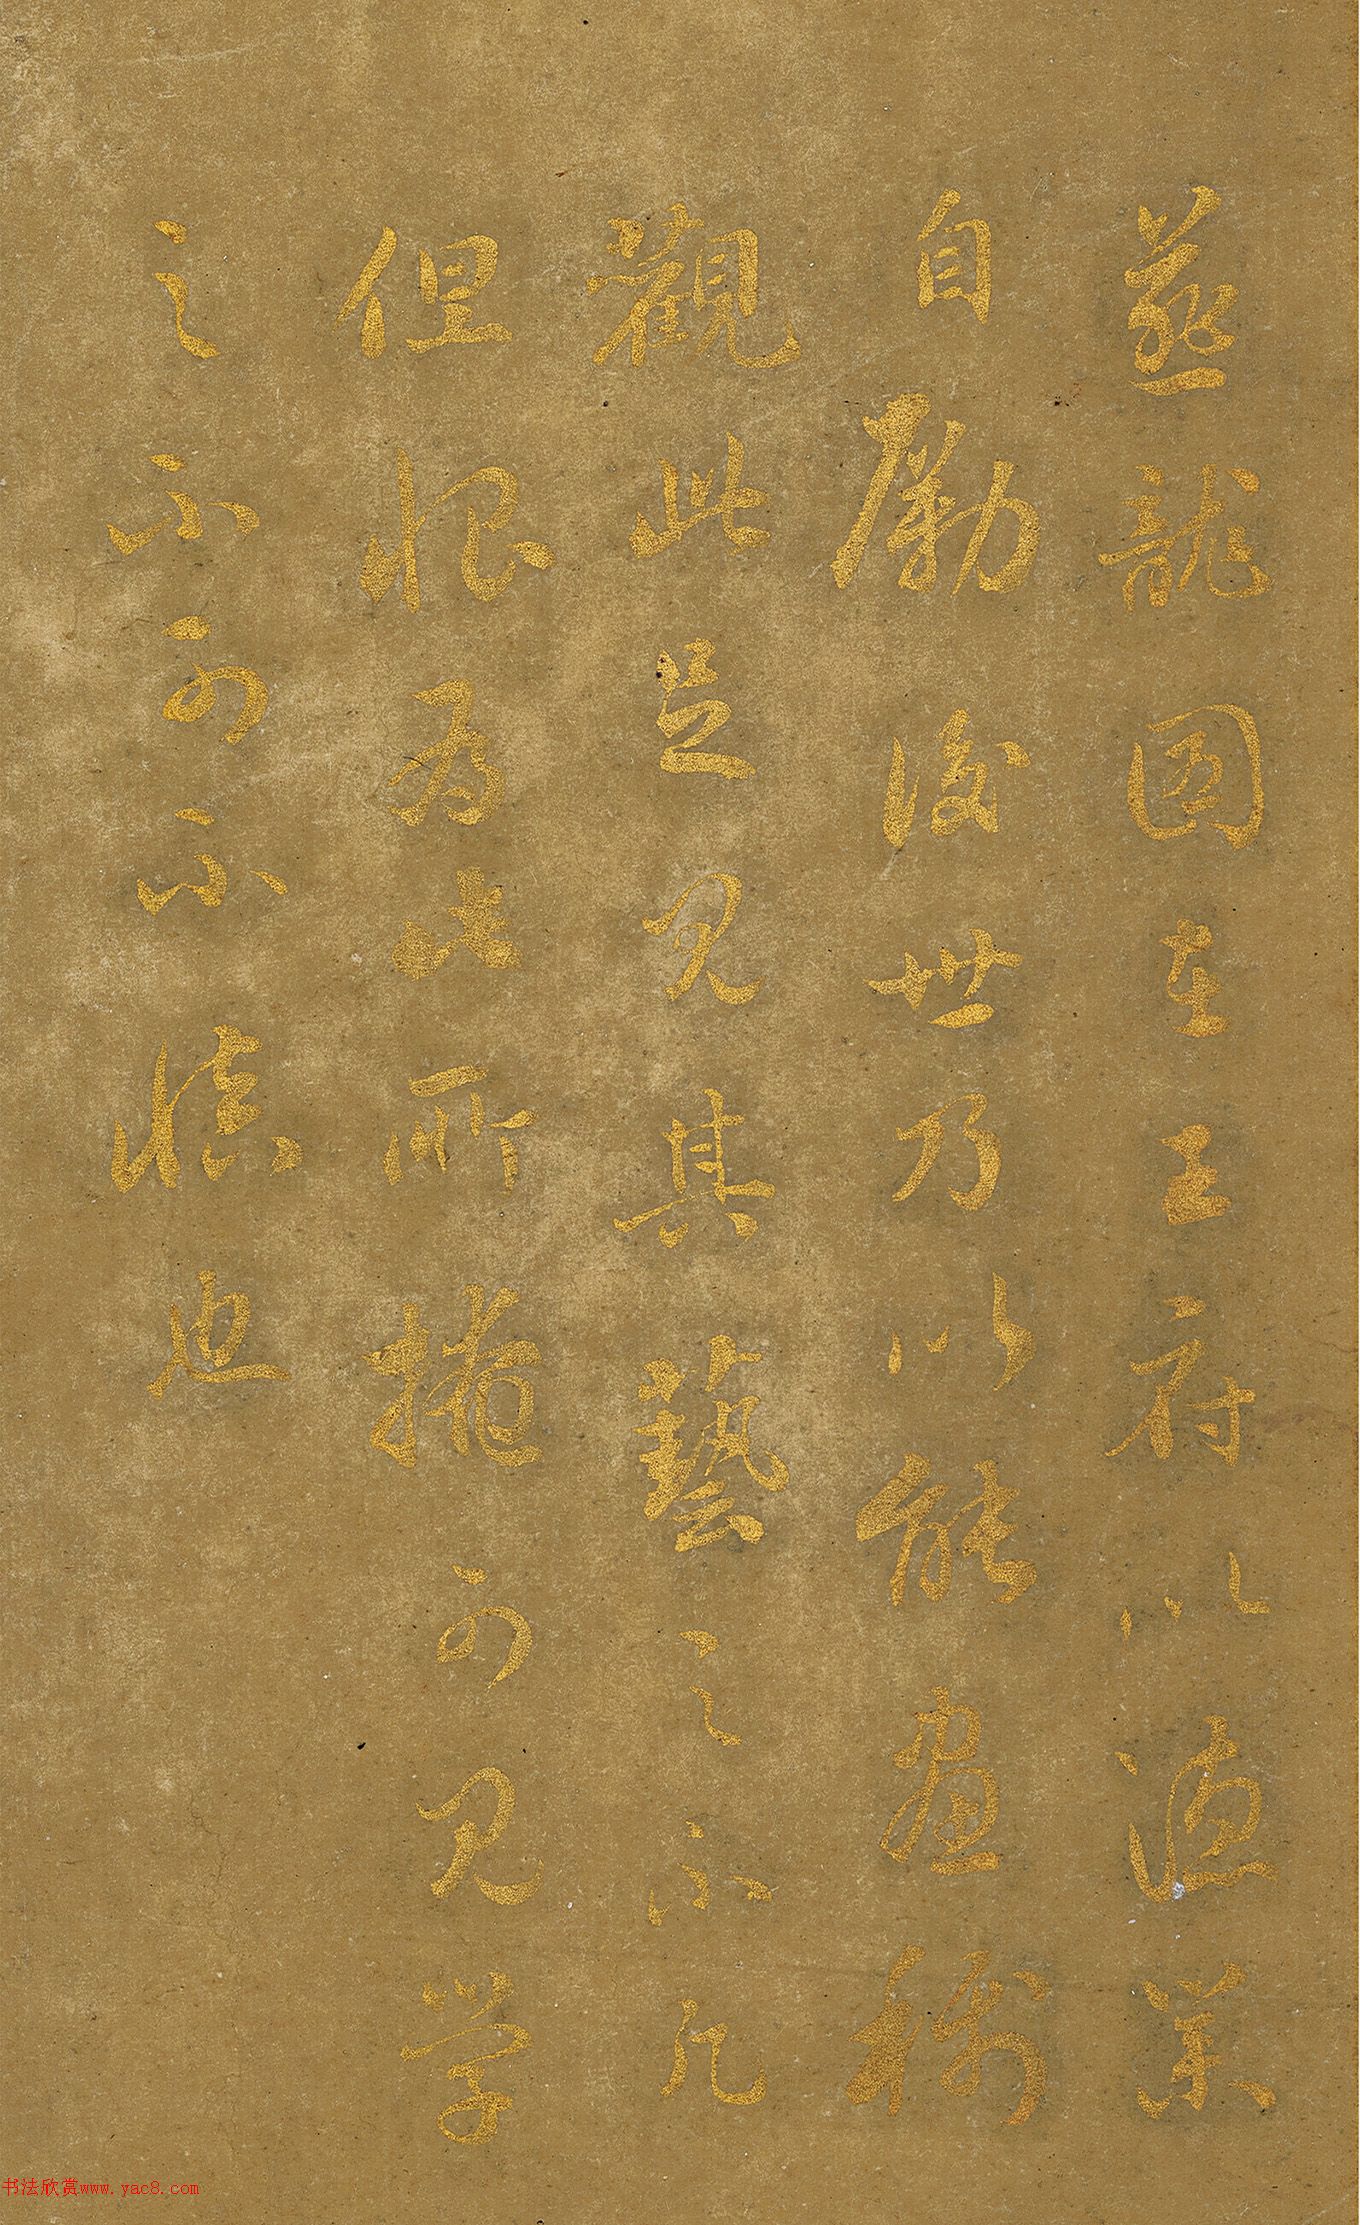 燕龍圖在王府以德業
自勵後世乃以能畫稱
觀此足見其藝之不凡
但恨為此所掩可見學
之不可不慎也
书法欣赏www.yac8.com